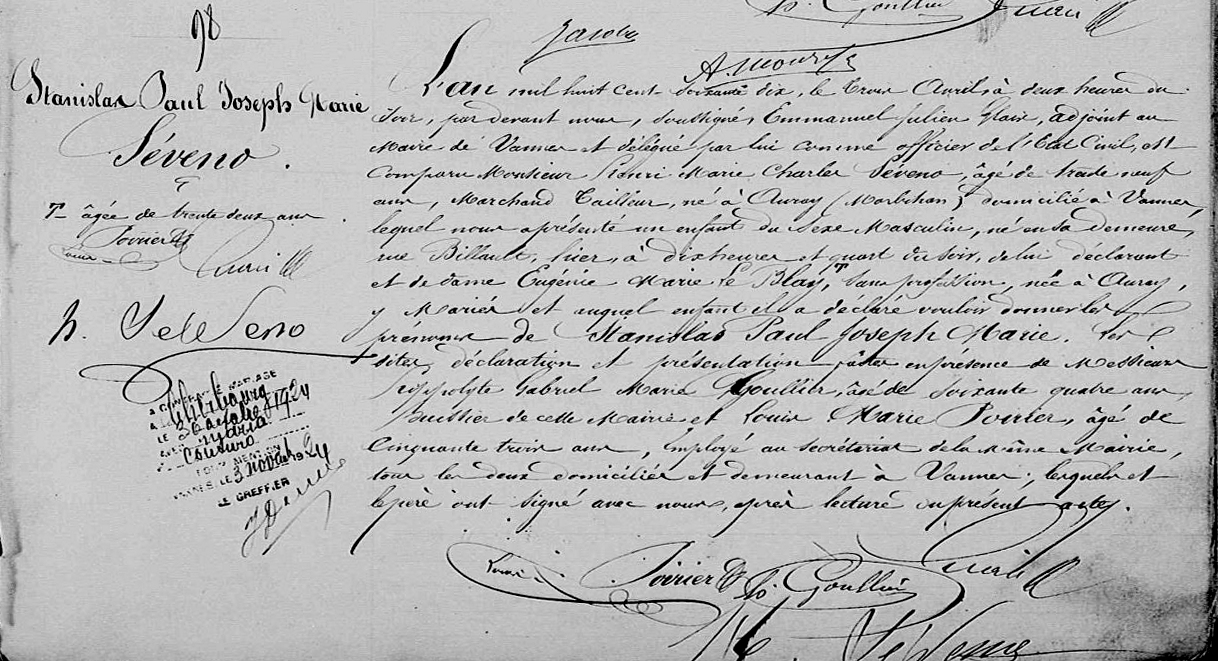 h. Goullin
Jacob
98
A. mourys
L'an mil huit cent soixante dix, le trois Avril, à deux heures du
Stanislas Paul Joseph Marie
Séveno.
soir, par devant nous, soussigné, Emmanuel Julien Glais, adjoint au
Maire de Vannes et délégué par lui comme officier de l'Etat Civil, est
comparu Monsieur Henri Marie Charles Séveno, âgé de trente neuf
ans, Marchand Tailleur, né à Auray (Morbihan) domicilié à Vannes,
lequel nous a présenté un enfant du sexe Masculin, né en sa demeure,
rue Billault, hier, à dix heures et quart du soir, de lui déclarant
et de dame Eugénie Marie Le Blay, T sans profession, née à Auray,
y Mariés et auquel enfant il a déclaré vouloir donner les
prénoms de Stanislas Paul Joseph Marie. Les
dites déclaration et présentation faites en présence de Messieurs
Hippolyte Gabriel Marie Goullin, âgé de soixante quatre ans
huissier de cette Mairie et Louis Marie Poirier, âgé de
Cinquante trois ans, employé au secrétariat de la même Mairie,
tous les deux domiciliés et demeurant à Vannes; lesquels et
le père ont signé avec nous, après lecture du présent acte.
T âgée de trente deux ans
Poirier
h.
A CONTRACTÉ MARIAGE
A
LE 30 octobre 1924
AVEC Maria
Couturo
POUR MENTION
VANNES, LE 3 novembre 1924
LE GREFFIER
Louis Poirier h. Goullin